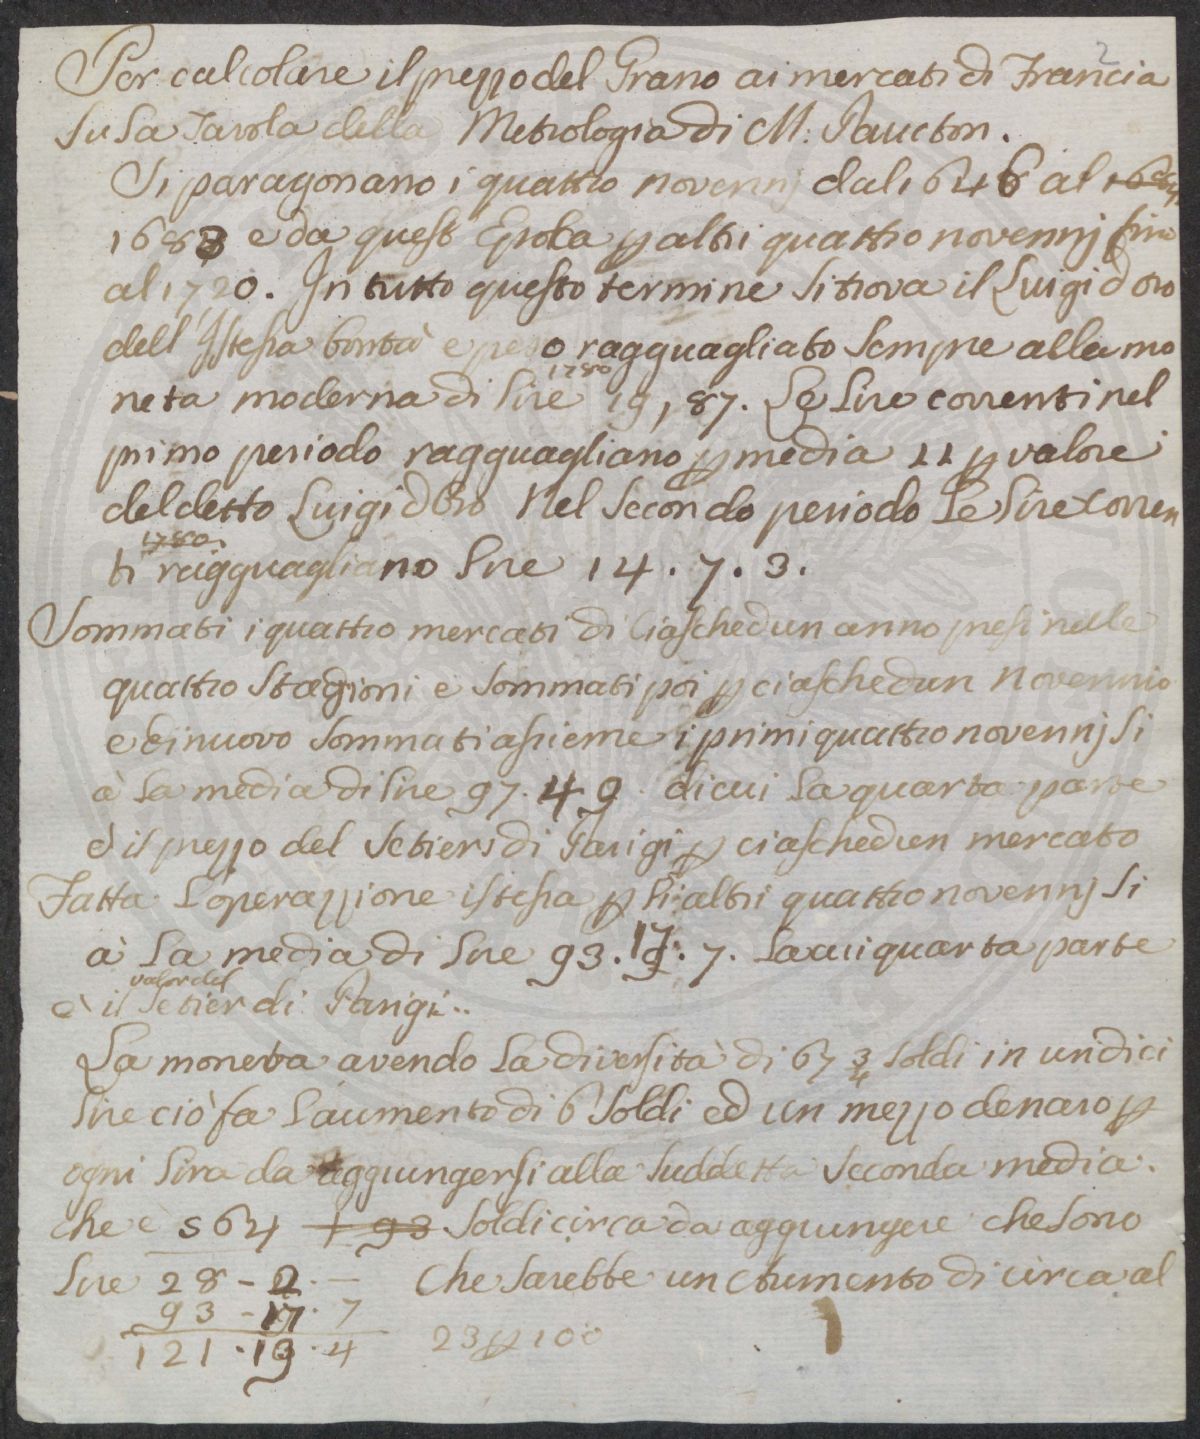 2
Per calcolare il prezzo del Grano ai mercati di Francia
su La Tavola della Metrologia di M: Paucton.
Si paragonano i quattro novennj dal 1646 al
1683 e da quest Epoka p altri quattro novennj fino
al 1720. In tutto questo termine si trova il Luigi d oro
dell' Istessa bontà e peso ragguagliato sempre alla mo
1780
neta moderna di Lire 19, 87. Le Lire correnti nel
primo periodo ragguagliano p media 11 p valore
del detto Luigi d Oro Nel secondo periodo Le Lire corren
1780.
ti ragguagliano Lire 14. 7. 3.
Sommati i quattro mercati di Ciaschedun anno presi nelle
quattro stagioni e sommati poi p ciaschedun Novennio
e di nuovo sommati assieme i primi quattro novennj si
à La media di Lire 97. 49. di cui La quarta parte
è il prezzo del Setiers di Parigi p ciaschedun mercato
Fatta L'operazzione istessa p li altri quattro novennj si
à La media di Lire 93. 17. 7. La cui quarta parte
valor del
è il Setier di Parigi..
La moneta avendo La diversità di 67 3/4 soldi in undici
Lire ciò fa L'aumento di 6 soldi ed un mezzo denaro p
ogni Lira da aggiungersi alla suddetta seconda media.
che è 564 + 98 soldi circa da aggiungere che sono
Lire 28 - 2. — Che sarebbe un aumento di circa al
93 - 17. 7
121. 19. 4 23 p 100